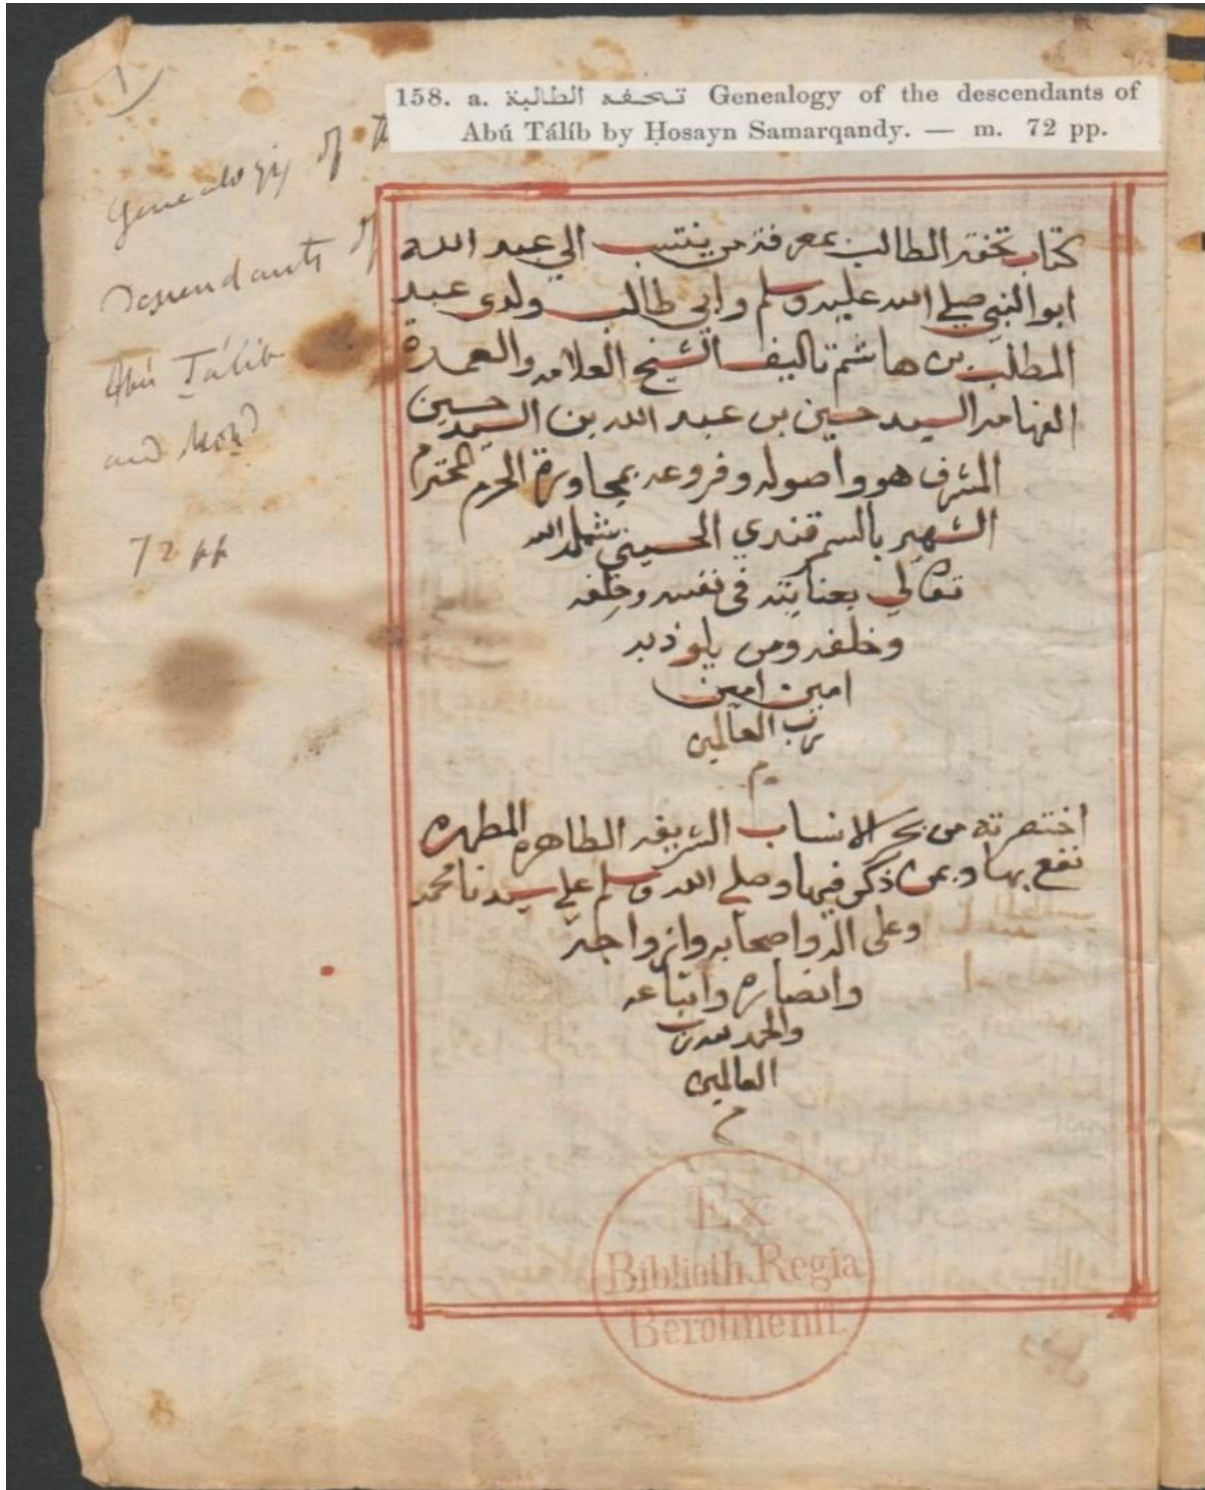 ١
158. a. تحفه الطالبة Genealogy of the descendants of
Abú Tálíb by Ḥosayn Samarqandy. — m. 72 pp.
Genealogy of th
Descendants of
Abú Tálib
and
72 pp
كتاب تحفة الطالب بمعرفة من ينتسب الي عبد الله
ابو النبي صلي الله عليه وسلم وابي طالب ولدي عبد
المطلب بن هاشم تاليف الشيخ العلامه والعمدة
الفهامه السيد حسين بن عبد الله بن السيد حسين
المشرف هو واصوله وفروعه بمجاورة الحرم المحترم
الشهير بالسمرقندي الحسيني شمله الله
تعالي بعنايته في نفسه وخلفه
وخلفه ومن يلوذ به
امين امين
رب العالمين
م
اختصرته من بحر الانساب الشريفه الطاهره المطهره
نفع بها وبمن ذكر فيها وصلي الله وسلم علي سيدنا محمد
وعلى اله واصحابه وازواجه
وانصاره واتباعه
والحمد لله رب
العالمين
م
Ex
Biblioth. Regia
Berolinenſi.